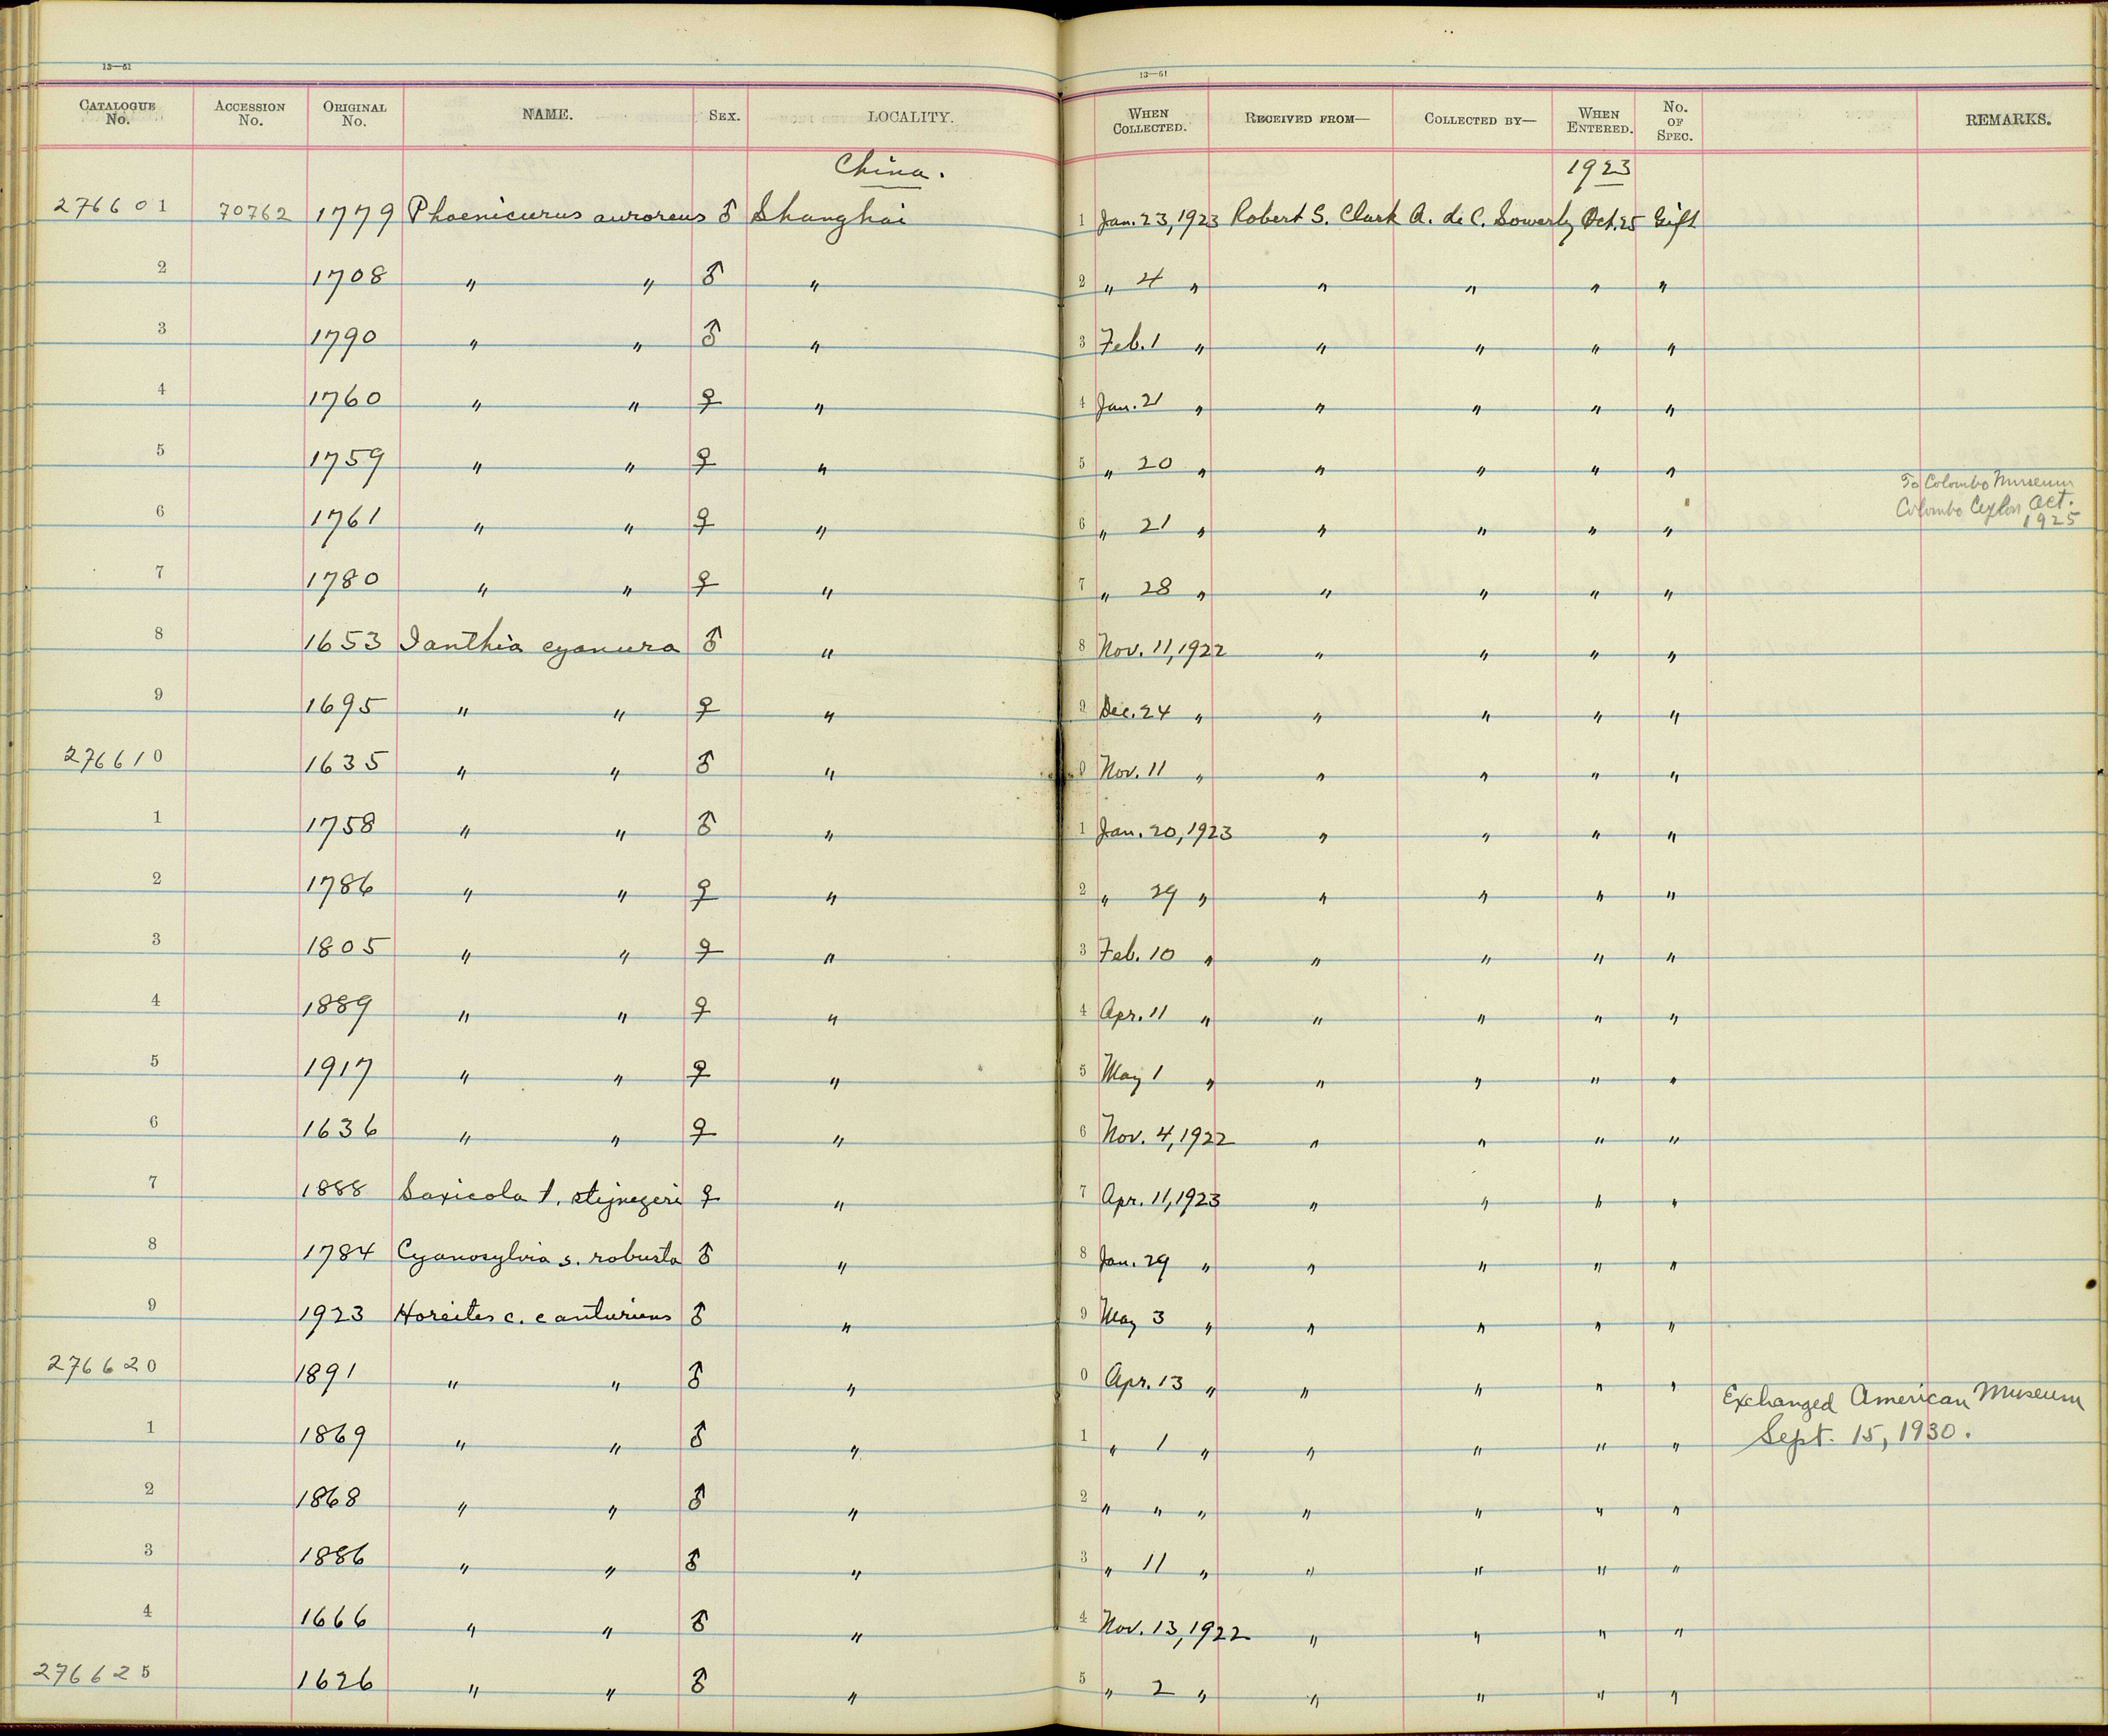 13—61 13—61
CATALOGUE No. ACCESSION No. ORIGINAL No. NAME. SEX. LOCALITY. WHEN COLLECTED. RECEIVED FROM— COLLECTED BY— WHEN ENTERED. No. OF SPEC. REMARKS.
China. 1923
276601 70762 1779 Phoenicurus auroreus ♂ Shanghai 1 Jan. 23, 1923 Robert S. Clark A. de C. Sowerby Oct. 25 Gift
2 1708 " " ♂ " 2 " 4 " " " " "
3 1790 " " ♂ " 3 Feb. 1 " " " " "
4 1760 " " ♀ " 4 Jan. 21 " " " " "
5 1759 " " ♀ " 5 " 20 " " " " "
To Colombo Museum
6 1761 " " ♀ " 6 " 21 " " " " " Colombo Ceylon Oct. 1925
7 1780 " " ♀ " 7 " 28 " " " " "
8 1653 Ianthia cyanura ♂ " 8 Nov. 11, 1922 " " " "
9 1695 " " ♀ " 9 Dec. 24 " " " " "
276610 1635 " " ♂ " 0 Nov. 11 " " " " "
1 1758 " " ♂ " 1 Jan. 20, 1923 " " " "
2 1786 " " ♀ " 2 " 29 " " " " "
3 1805 " " ♀ " 3 Feb. 10 " " " " "
4 1889 " " ♀ " 4 Apr. 11 " " " " "
5 1917 " " ♀ " 5 May 1 " " " " "
6 1636 " " ♀ " 6 Nov. 4, 1922 " " " "
7 1888 Saxicola t. stejnegeri ♀ " 7 Apr. 11, 1923 " " " "
8 1784 Cyanosylvia s. robusta ♂ " 8 Jan. 29 " " " " "
9 1923 Horeites c. canturiens ♂ " 9 May 3 " " " " "
276620 1891 " " ♂ " 0 Apr. 13 " " " " "
Exchanged American Museum
1 1869 " " ♂ " 1 " 1 " " " " " Sept. 15, 1930.
2 1868 " " ♂ " 2 " " " " " " "
3 1886 " " ♂ " 3 " 11 " " " " "
4 1666 " " ♂ " 4 Nov. 13, 1922 " " " "
276625 1626 " " ♂ " 5 " 2 " " " " "